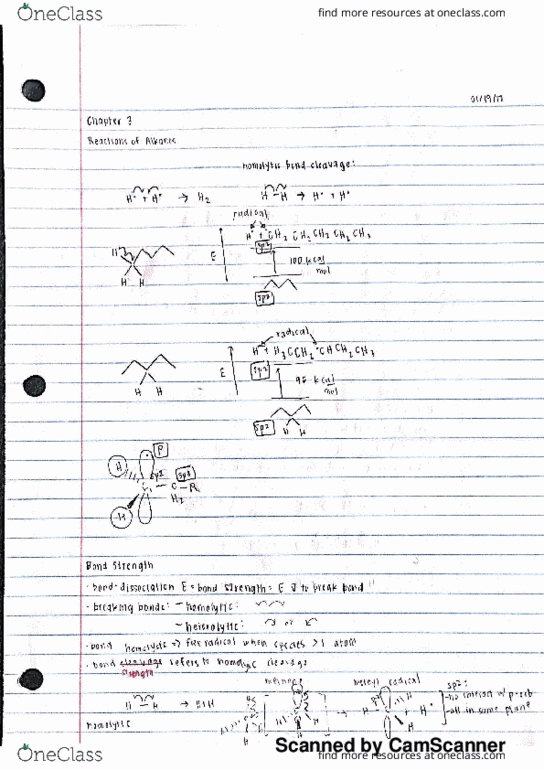 OneClass
find more resources at oneclass.com
01/19/17
Chapter 3
Reactions of Alkanes
homolytic bond cleavage:
H• + H• → H2 H–H → H• + H•
radical
H• + •CH2 CH2 CH2 CH2 CH3
sp2
E
100 kcal
mol
H
H H
sp3
radical
H• + H3CCH2 •CHCH2CH3
sp2
E
98 kcal
mol
H H
sp3
H H
P
H sp2 sp3
C C–R
H H2
Bond Strength
· bond-dissociation E = bond strength = E to break bond
· breaking bonds: – homolytic:
– heterolytic: or
· bond homolysis → free radical when species > 1 atom
· bond cleavage refers to homolytic cleavage
strength
methane methyl radical sp2:
H–H →
no interson w/ p-orb
all in same plane
homolytic
Scanned by CamScanner
OneClass
find more resources at oneclass.com